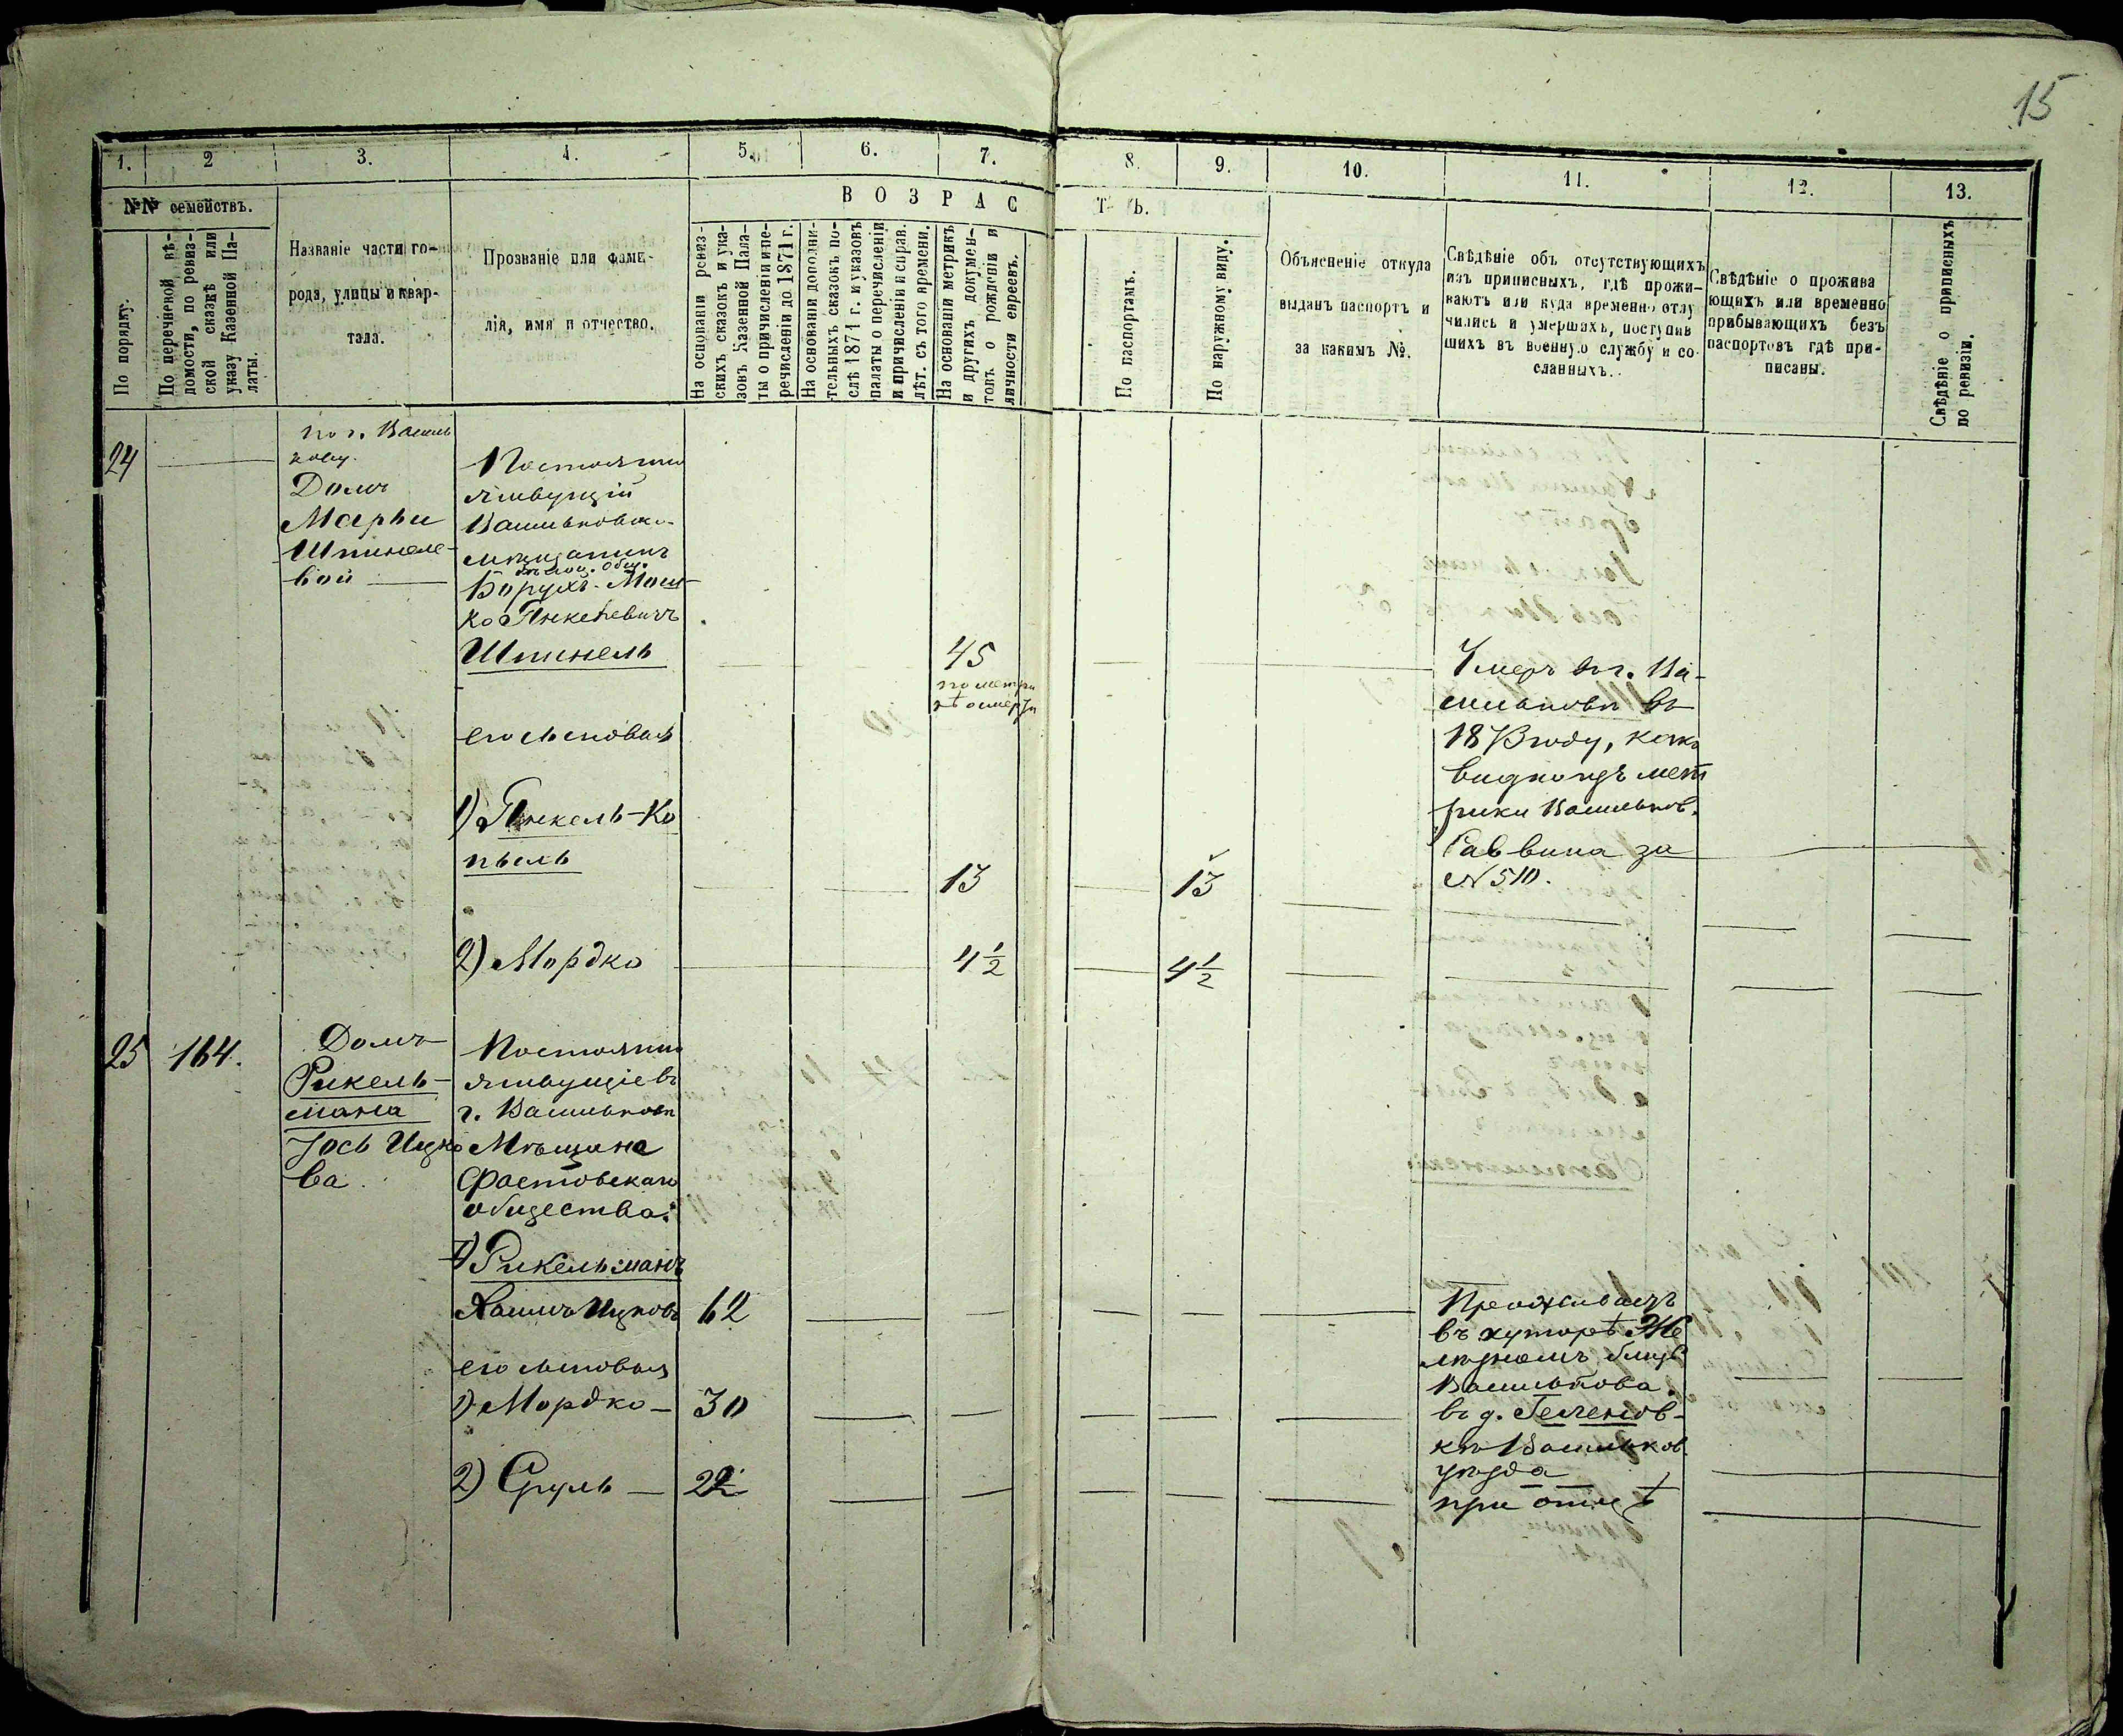 15
1. 2 3. 4. 5. 6. 7. 8. 9. 10. 11. 12. 13.
№№ семействъ.
В О З Р А С Т Ъ.
По порядку.
По перечневой вѣ-
домости, по ревиз-
ской сказкѣ или
указу Казенной Па-
латы.
Названіе части го-
рода, улицы и квар-
тала.
Прозваніе или фами-
лія, имя и отчество.
На основаніи ревиз-
скихъ сказокъ и ука-
зовъ Казенной Пала-
ты о причисленіи и пе-
речисленіи до 1871 г.
На основаніи дополни-
тельныхъ сказокъ по-
слѣ 1871 г. и указовъ
палаты о перечисленіи
и причисленіи и справ.
лѣт. съ того времени.
На основаніи метрикъ
и другихъ докумен-
товъ о рожденіи и
личности евреевъ.
По паспортамъ.
По наружному виду.
Объясненіе откуда
выданъ паспортъ и
за какимъ №.
Свѣдѣніе объ отсутствующихъ
изъ приписныхъ, гдѣ прожи-
ваютъ или куда временно отлу
чились и умершихъ, поступив
шихъ въ военную службу и со-
сланныхъ.
Свѣдѣніе о прожива
ющихъ или временно
прибывающихъ безъ
паспортовъ гдѣ при-
писаны.
Свѣдѣніе о приписныхъ
по ревизіи.
24
по г. Василь
кову.
Домъ
Марьи
Шпинеле-
вой
Постоянно
живущій
Васильковск.
мѣщанинъ
Борухъ-Мош-
ко Янкелевичъ
Шпинель
45
по метри
кѣ о смерти
Умеръ въ г. Ва-
сильковѣ въ
18 году, какъ
видно изъ мет
рики Васильков.
Раввина за
№ 510.
его сыновья
1) Янкель-Ко
пель
13 13
2) Мордко
4 1/2 4 1/2
25 164.
Домъ
Рикель-
мана
Іось Ицко
ва
Постоянно
живущіе въ
г. Васильковѣ
Мѣщане
Фастовскаго
общества:
1) Рикельманъ
Хаимъ Ицковъ 62
Проживаетъ
въ хуторѣ
близъ
Василькова.
его сыновья
1) Мордко — 30
въ д.
кѣ Васильков.
уѣзда
2) Сруль — 22
при отцѣ